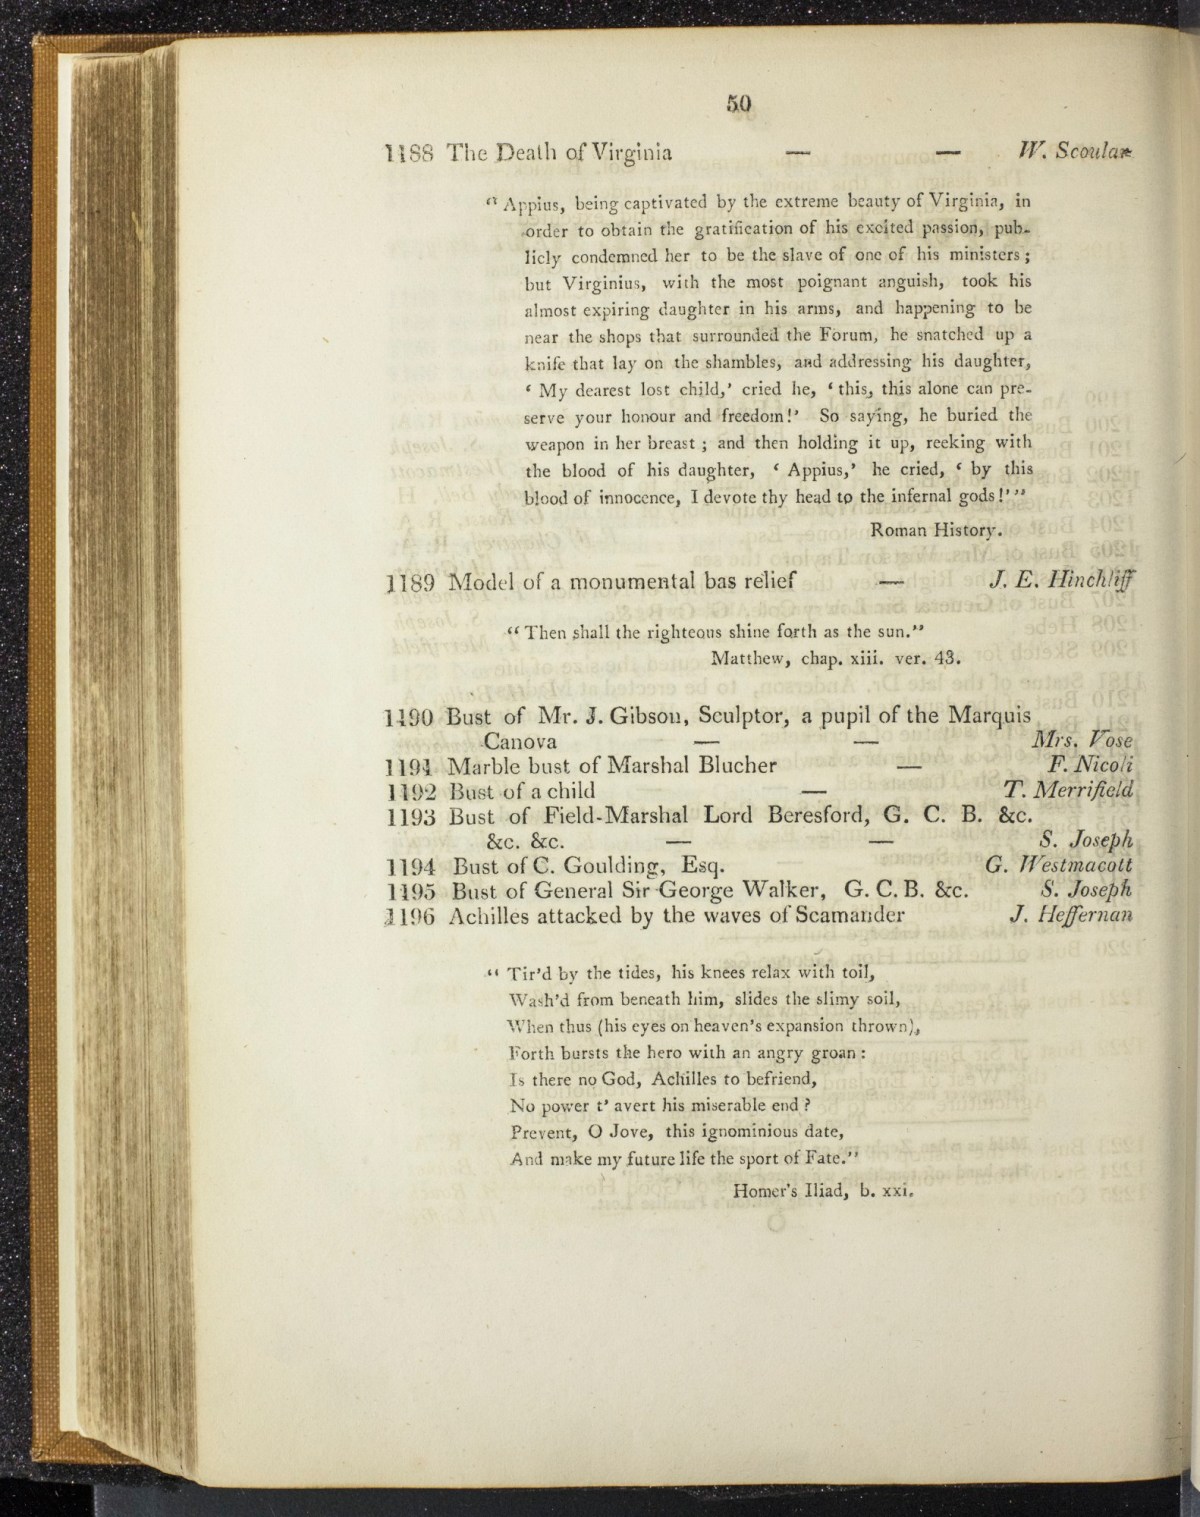 50
1188 The Death of Virginia — — W. Scoular
“ Appius, being captivated by the extreme beauty of Virginia, in
order to obtain the gratification of his excited passion, pub-
licly condemned her to be the slave of one of his ministers ;
but Virginius, with the most poignant anguish, took his
almost expiring daughter in his arms, and happening to be
near the shops that surrounded the Forum, he snatched up a
knife that lay on the shambles, and addressing his daughter,
‘ My dearest lost child,’ cried he, ‘ this, this alone can pre-
serve your honour and freedom!’ So saying, he buried the
weapon in her breast ; and then holding it up, reeking with
the blood of his daughter, ‘ Appius,’ he cried, ‘ by this
blood of innocence, I devote thy head to the infernal gods!’”
Roman History.
1189 Model of a monumental bas relief — J. E. Hinchliff
“ Then shall the righteous shine forth as the sun.”
Matthew, chap. xiii. ver. 43.
1190 Bust of Mr. J. Gibson, Sculptor, a pupil of the Marquis
Canova — — Mrs. Vose
1191 Marble bust of Marshal Blucher — F. Nicoli
1192 Bust of a child — T. Merrifield
1193 Bust of Field-Marshal Lord Beresford, G. C. B. &c.
&c. &c. — — S. Joseph
1194 Bust of C. Goulding, Esq. G. Westmacott
1195 Bust of General Sir George Walker, G. C. B. &c. S. Joseph
1196 Achilles attacked by the waves of Scamander J. Heffernan
“ Tir’d by the tides, his knees relax with toil,
Wash’d from beneath him, slides the slimy soil,
When thus (his eyes on heaven’s expansion thrown),
Forth bursts the hero with an angry groan :
Is there no God, Achilles to befriend,
No power t’ avert his miserable end ?
Prevent, O Jove, this ignominious date,
And make my future life the sport of Fate.”
Homer’s Iliad, b. xxi.